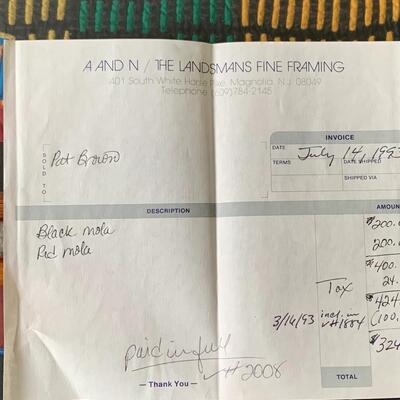 A AND N / THE LANDSMANS FINE FRAMING
401 South White Horse Pike, Magnolia, N.J. 08049
Telephone (609)784-2145
INVOICE
SOLD TO
Pat Brown
DATE July 14, 1993
TERMS DATE SHIPPED
SHIPPED VIA
DESCRIPTION AMOUN
Black mola $200.
Red mola 200.
$400.
Tax 24.
$424
3/16/93 incl. in (100.
$324
paid in full
✓# 2008
— Thank You —
TOTAL